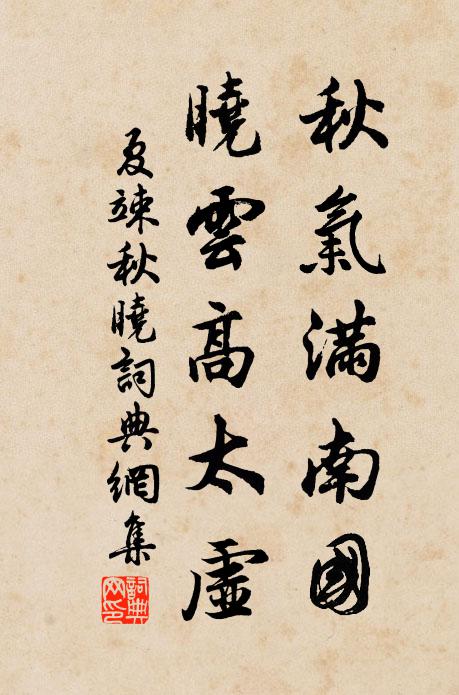 秋氣滿南國
曉雲高太虛
夏竦秋曉詞典網集
詞典網印